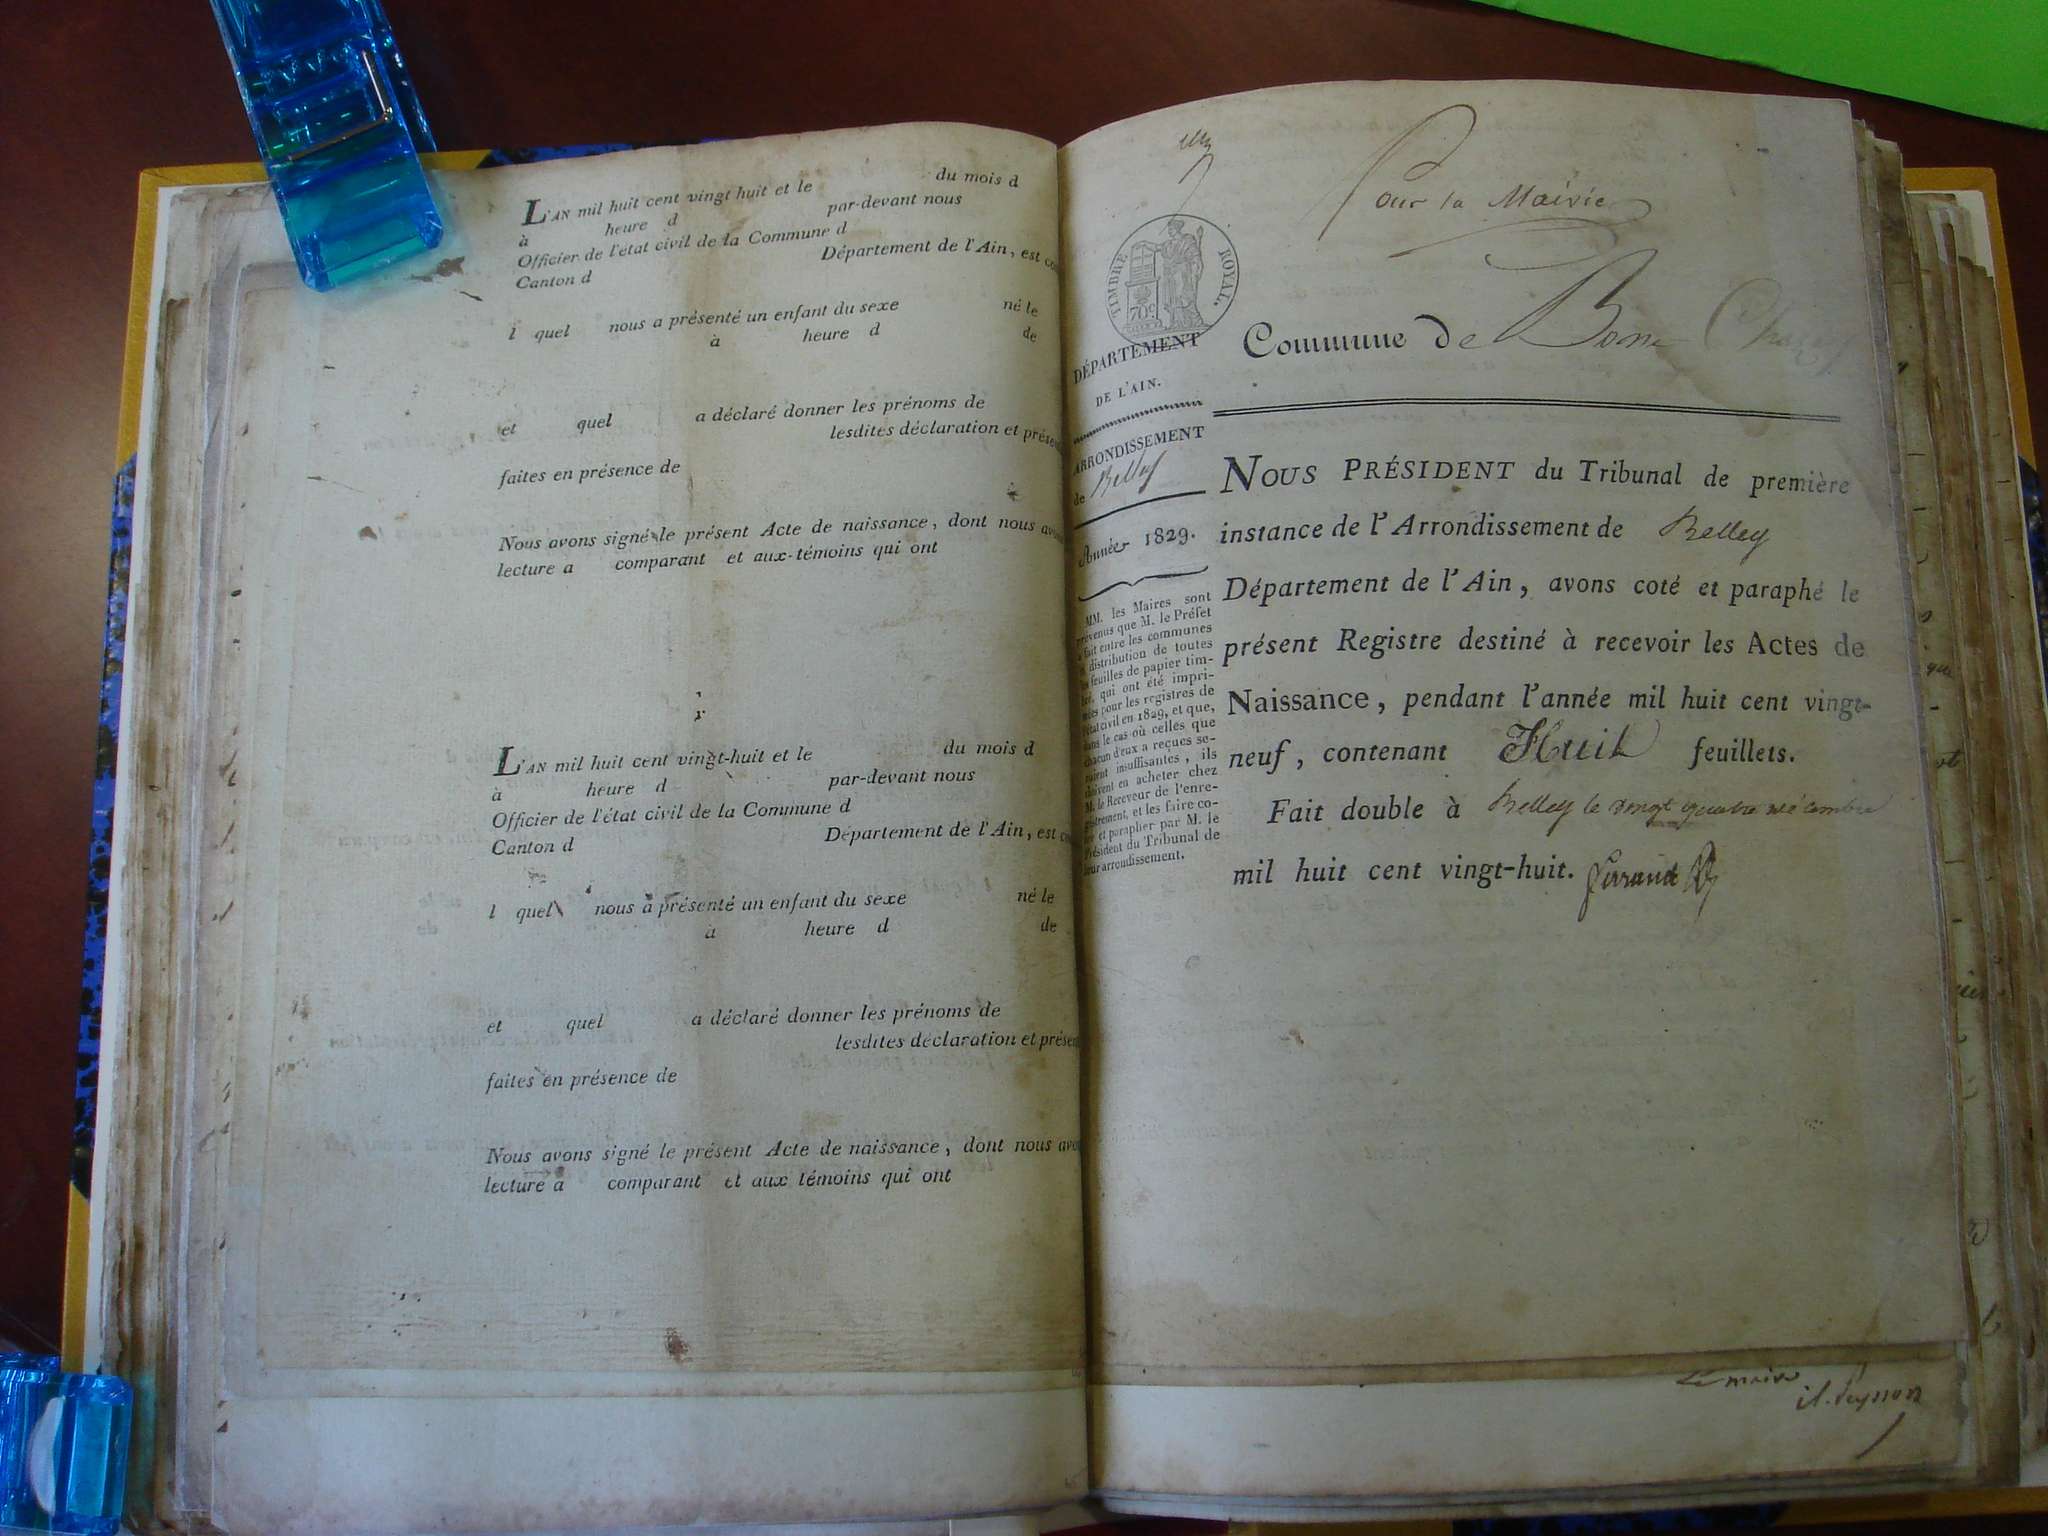 L'AN mil huit cent vingt huit et le du mois d
à heure d par-devant nous
Officier de l'état civil de la Commune d
Canton d Département de l'Ain, est
l quel nous a présenté un enfant du sexe né le
à heure d de
et quel a déclaré donner les prénoms de
lesdites déclaration et prése
faites en présence de
Nous avons signé le présent Acte de naissance, dont nous av
lecture a comparant et aux-témoins qui ont
L'AN mil huit cent vingt-huit et le du mois d
à heure d par-devant nous
Officier de l'état civil de la Commune d
Canton d Département de l'Ain, est
l quel nous a présenté un enfant du sexe né le
à heure d de
et quel a déclaré donner les prénoms de
lesdites déclaration et présen
faites en présence de
Nous avons signé le présent Acte de naissance, dont nous avo
lecture a comparant et aux témoins qui ont
Pour la Mairie
TIMBRE ROYAL.
70c
DÉPARTEMENT
DE L'AIN.
ARRONDISSEMENT
de Belley
Année 1829.
MM. les Maires sont
prévenus que M. le Préfet
a fait entre les communes
la distribution de toutes
les feuilles de papier tim-
bré, qui ont été impri-
mées pour les registres de
l'état civil en 1829, et que,
dans le cas où celles que
chacun d'eux a reçues se-
raient insuffisantes, ils
doivent en acheter chez
M. le Receveur de l'enre-
gistrement, et les faire co-
ter et parapher par M. le
Président du Tribunal de
leur arrondissement.
Commune de
NOUS PRÉSIDENT du Tribunal de première
instance de l'Arrondissement de Belley
Département de l'Ain, avons coté et paraphé le
présent Registre destiné à recevoir les Actes de
Naissance, pendant l'année mil huit cent vingt-
neuf, contenant Huit feuillets.
Fait double à Belley le vingt quatre décembre
mil huit cent vingt-huit.
Le maire